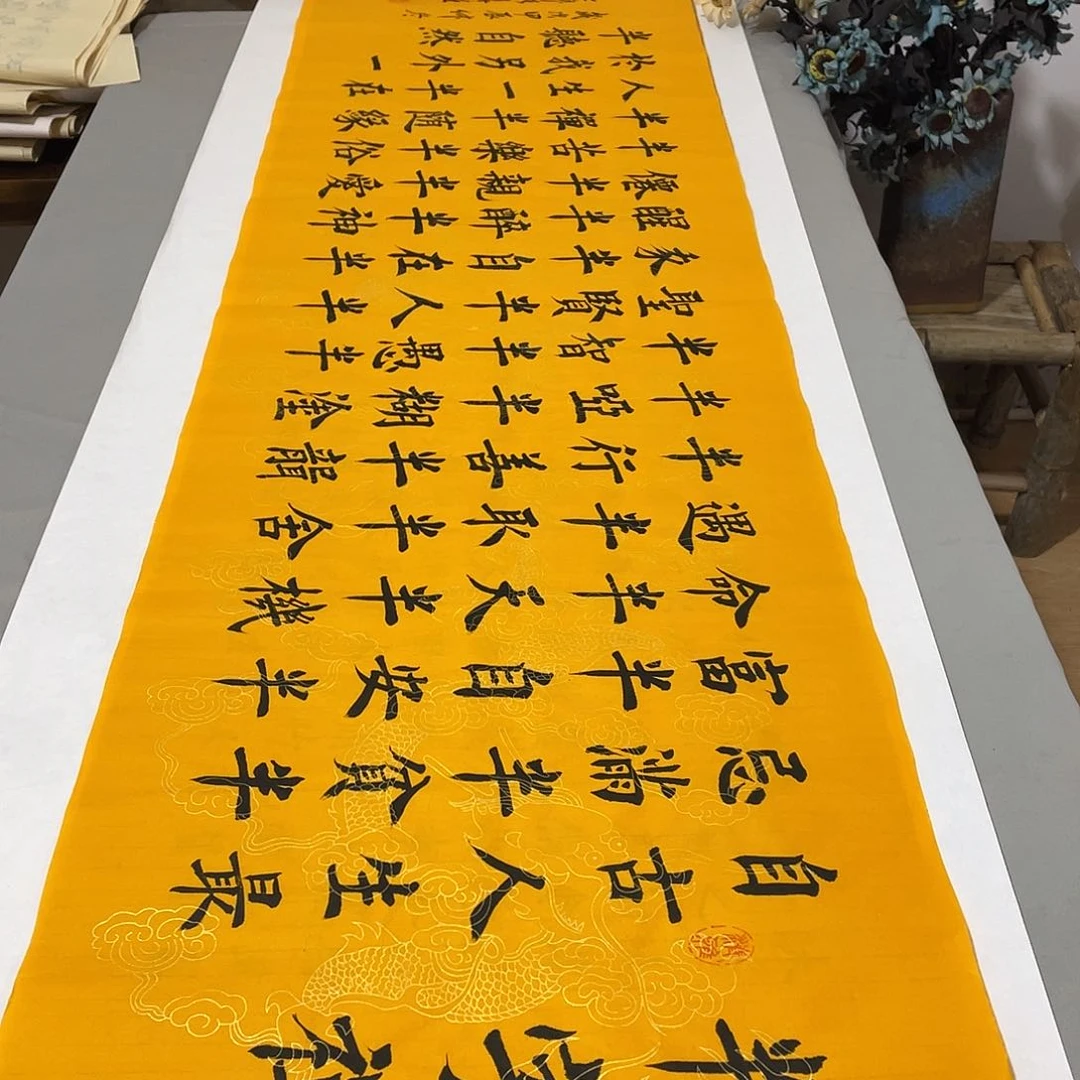 半
自古人生最
忌滿半貪半
富半自安半
命半天半機
遇半取半舍
半行善半聾
半啞半糊塗
半智半愚半
聖賢半人半
象半自在半
醒半醉半神
僊半親半愛
半苦樂半俗
半禪半隨緣
人生一半在
於我另外一
半聽自然